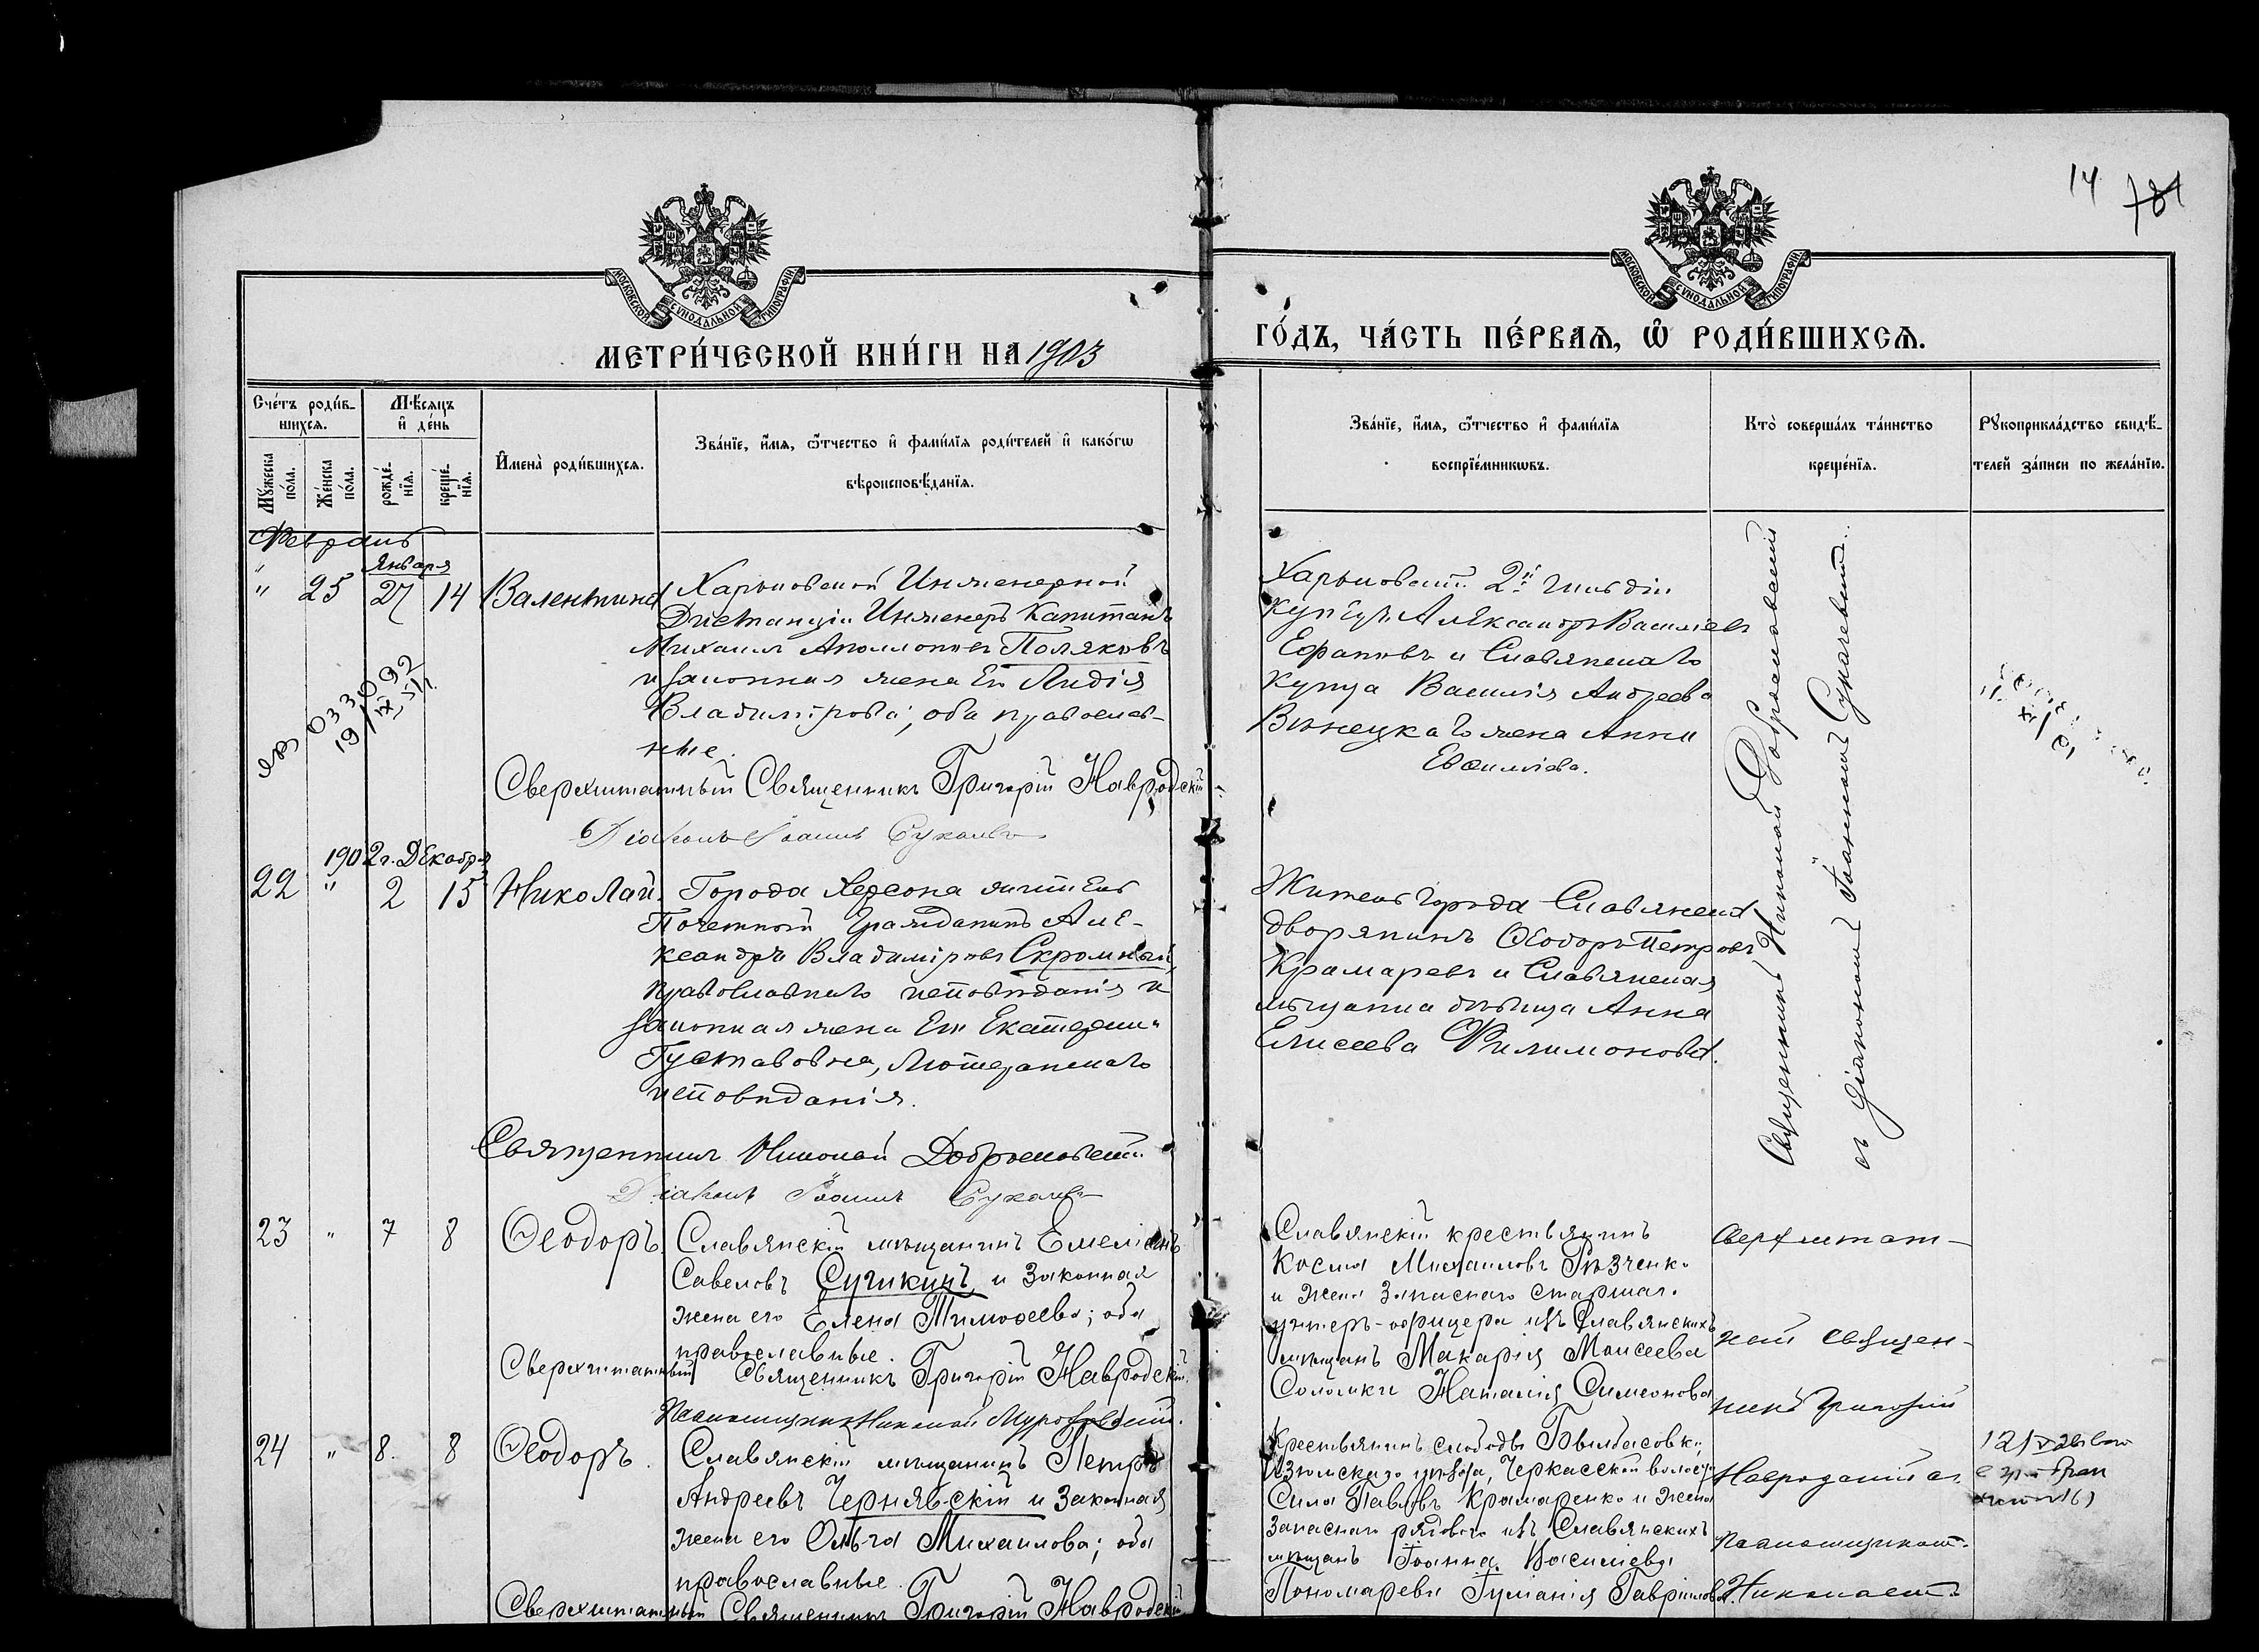 14 781
МОСКОВСКОЙ СѴНОДАЛЬНОЙ ТИПОГРАФІИ
МОСКОВСКОЙ СѴНОДАЛЬНОЙ ТИПОГРАФІИ
МЕТРИ́ЧЕСКОЙ КНИ́ГИ НА 1903
ГО́ДЪ, ЧА́СТЬ ПЕ́РВАѦ, Ѽ РОДИ́ВШИХСѦ.
Сче́тъ роди́в-
шихсѧ.
Мѣ́сѧцъ
и҆ де́нь
Мꙋ́жеска по́ла.
Же́нска по́ла.
рожде́нїѧ.
креще́нїѧ.
И҆мена̀ роди́вшихсѧ.
Зва́нїе, и҆́мѧ, ѻ҆́тчество и҆ фами́лїѧ роди́телей и҆ како́гѡ
вѣроисповѣ́данїѧ.
Зва́нїе, и҆́мѧ, ѻ҆́тчество и҆ фами́лїѧ
воспрїе́мникѡвъ.
Кто̀ соверша́лъ та́инство
креще́нїѧ.
Рꙋкоприкла́дство свидѣ́-
телей за́писи по жела́нїю.
Февраль
Января
" 25 27 14 Валентина
Харьковской Инженерной
Дистанціи Инженеръ Капитанъ
Михаилъ Аполлоновъ Поляковъ
и законная жена его Лидія
Владимірова, оба православ-
ные.
Сверхштатный Священникъ Григорій Навродскій
Діаконъ Іоаннъ Сукачевъ
Харьковскій 2й гильдіи
купецъ Александръ Васильевъ
Ефановъ и Славянскаго
купца Василія Андреева
жена Анна
Священникъ Николай Доброславскій
съ діакономъ Іоанномъ Сукачевымъ.
033092
19/IX 51 г.
1902 г. Декабря
22 " 2 15 Николай.
Города Херсона житель
Почетный Гражданинъ Але-
ксандръ Владиміровъ Скромный,
православнаго исповѣданія и
законная жена его Екатерина
Густавовна, лютеранскаго
исповѣданія.
Священникъ Николай Доброславскій
Діаконъ Іоаннъ Сукачевъ
Житель города Славянска
дворянинъ Ѳеодоръ Петровъ
Крамаревъ и Славянская
мѣщанка дѣвица Анна
Елисеева Филимонова.
23 " 7 8 Ѳеодоръ.
Славянскій мѣщанинъ Емеліанъ
Савеловъ Сучикинъ и законная
жена его Елена Тимоѳеева; оба
православные.
Сверхштатный Священникъ Григорій Навродскій.
Псаломщикъ Николай
Славянскій крестьянинъ
Косма Михаиловъ Рѣзченко
и жена запаснаго старшаго
унтеръ-офицера изъ Славянскихъ
мѣщанъ Макарія Моисеева
Соломки Наталія Симеонова
Сверхштат-
ный священ-
никъ Григорій
Навродскій съ
псаломщикомъ
Николаемъ
24 " 8. 8 Ѳеодоръ.
Славянскій мѣщанинъ Петръ
Андреевъ Чернявскій и законная
жена его Ольга Михаилова; оба
православные.
Сверхштатный Священникъ Григорій Навродскій
Крестьянинъ слободы Былбасовки,
Изюмскаго уѣзда, Черкасской волости
Сила Павловъ Крамаренко и жена
запаснаго рядового изъ Славянскихъ
мѣщанъ Іоанна Васильева
Пономарева Гуліанія Гавріилова.